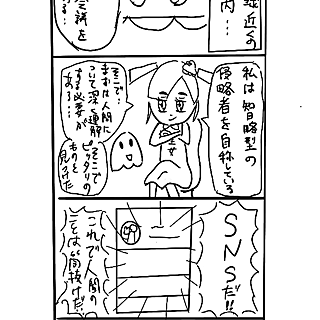 球近くの
内…
会議を
る…
私は智略型の
侵略者を自称している
そこで…
まずは人間に
ついて深く理解
する必要が
ある…
そこで
ピッタリの
ものを
見つけた
SNSだ!!
これで人間の
ことは筒抜けだ!!